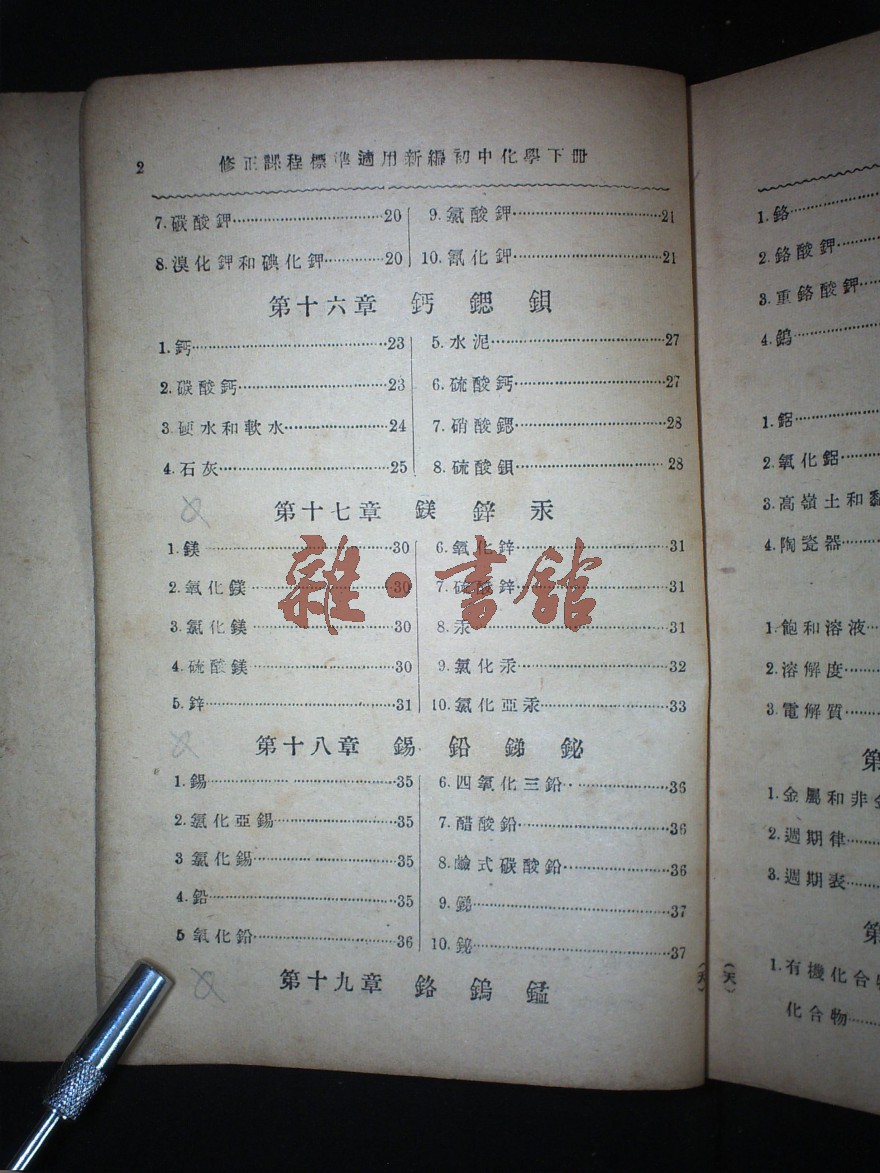 2 修正課程標準適用新編初中化學下冊
7. 碳酸鉀………20
8. 溴化鉀和碘化鉀………20
9. 氯酸鉀………21
10. 氰化鉀………21
第十六章 鈣 鍶 鋇
1. 鈣………23
2. 碳酸鈣………23
3. 硬水和軟水………24
4. 石灰………25
5. 水泥………27
6. 硫酸鈣………27
7. 硝酸鍶………28
8. 硫酸鋇………28
第十七章 鎂 鋅 汞
1. 鎂………30
2. 氧化鎂………30
3. 氯化鎂………30
4. 硫酸鎂………30
5. 鋅………31
6. 氧化鋅………31
7. 硫酸鋅………31
8. 汞………31
9. 氯化汞………32
10. 氯化亞汞………33
雜·書館
第十八章 錫 鉛 銻 鉍
1. 錫………35
2. 氯化亞錫………35
3 氯化錫………35
4. 鉛………35
5 氧化鉛………36
6. 四氧化三鉛………36
7. 醋酸鉛………36
8. 鹼式碳酸鉛………36
9. 銻………37
10. 鉍………37
第十九章 鉻 鎢 錳
(天)
1. 鉻………
2. 鉻酸鉀………
3. 重鉻酸鉀………
4. 鎢………
1. 鋁………
2. 氧化鋁………
3. 高嶺土和黏
4. 陶瓷器………
1. 飽和溶液………
2. 溶解度………
3. 電解質………
第
1. 金屬和非金
2. 週期律………
3. 週期表………
第
1. 有機化合物
化合物………
(天)